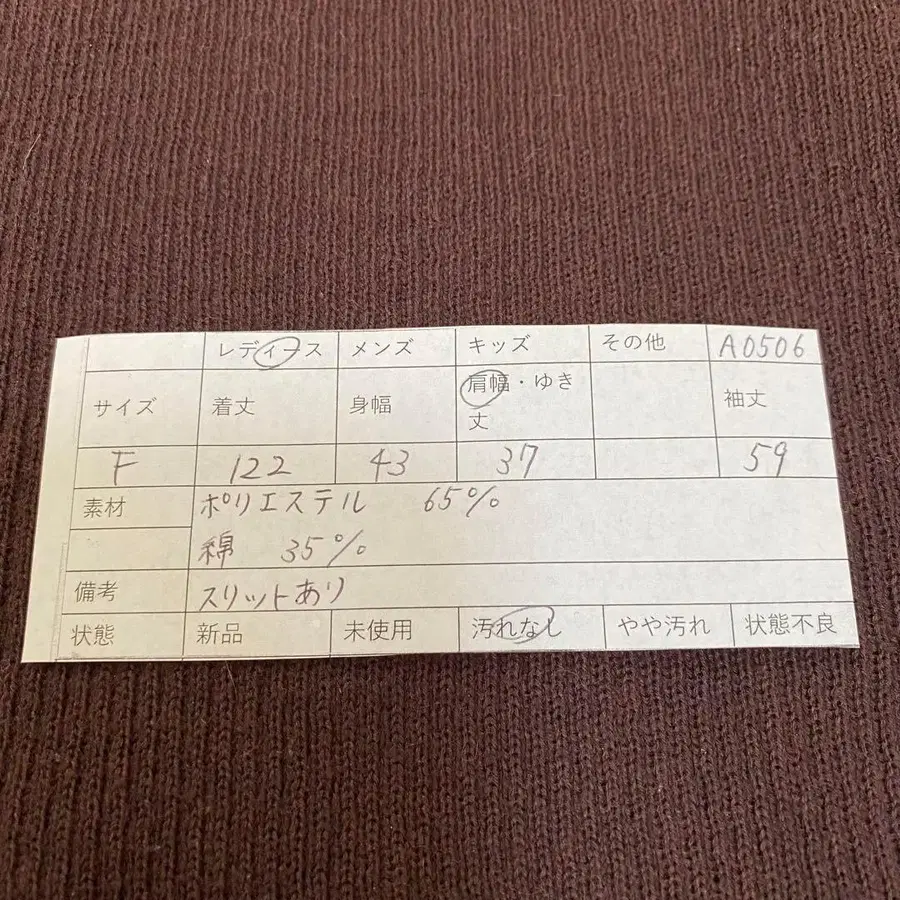 レディース メンズ キッズ その他 A0506
サイズ 着丈 身幅 肩幅・ゆき丈 袖丈
F 122 43 37 59
素材 ポリエステル 65%
綿 35%
備考 スリットあり
状態 新品 未使用 汚れなし やや汚れ 状態不良